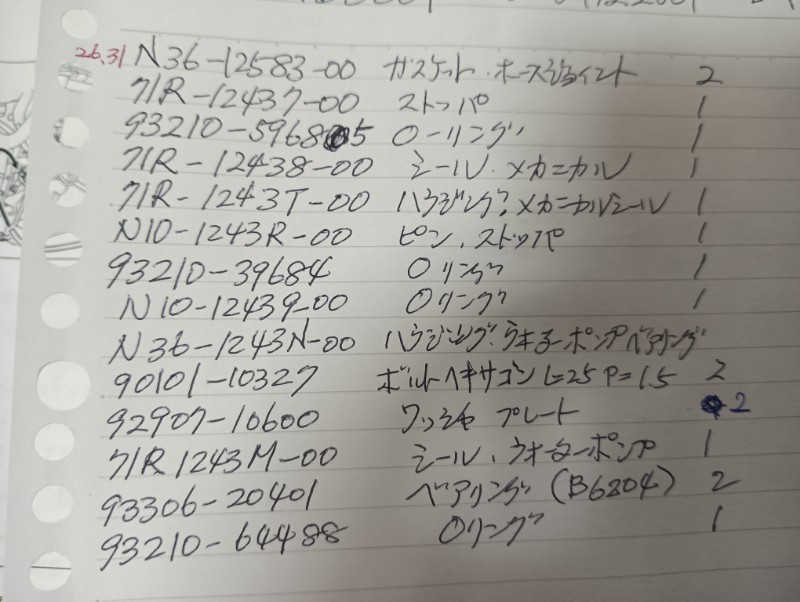 26.31 N36-12583-00 ガスケット.ホースジョイント 2
71R-12437-00 ストッパ 1
93210-5968 05 Oーリング 1
71R-12438-00 シール.メカニカル 1
71R-1243T-00 ハウジング?メカニカルシール 1
N10-1243R-00 ピン.ストッパ 1
93210-39684 Oリング 1
N10-12439-00 Oリング 1
N36-1243N-00 ハウジング.ウオターポンプベアリング
90101-10327 ボルトヘキサゴン L=25 P=1.5 2
92907-10600 ワッシャ プレート 2
71R 1243M-00 シール、ウオーターポンプ 1
93306-20401 ベアリング (B6204) 2
93210-64488 Oリング 1